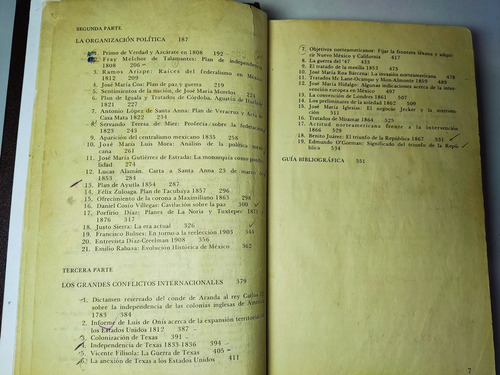 SEGUNDA PARTE
LA ORGANIZACIÓN POLÍTICA 187
1. Primo de Verdad y Azcárate en 1808 192
2. Fray Melchor de Talamantes: Plan de independencia
1808 206
3. Ramos Arizpe: Raíces del federalismo en México
1812 209
4. José María Cos: Plan de paz y guerra 219
5. Sentimientos de la nación, de José María Morelos 224
6. Plan de Iguala y Tratados de Córdoba, Agustín de Iturbide
1821 227
7. Antonio López de Santa Anna: Plan de Veracruz y Acta de
Casa Mata 1822 234
8. Servando Teresa de Mier: Profecía sobre la federación
1823 243
9. Aparición del centralismo mexicano 1835 258
10. José María Luis Mora: Análisis de la política mexi-
cana 261
11. José María Gutiérrez de Estrada: La monarquía como posibi-
lidad 274
12. Lucas Alamán. Carta a Santa Anna 23 de marzo de
1853 284
13. Plan de Ayutla 1854 287
14. Félix Zuloaga. Plan de Tacubaya 1857 296
15. Ofrecimiento de la corona a Maximiliano 1863 298
16. Daniel Cosío Villegas: Cavilación sobre la paz 300
17. Porfirio Díaz: Planes de La Noria y Tuxtepec 1871
1876 317
18. Justo Sierra: La era actual 326
19. Francisco Bulnes: En torno a la reelección 1903 344
20. Entrevista Díaz-Creelman 1908 356
21. Emilio Rabasa: Evolución Histórica de México 362
TERCERA PARTE
LOS GRANDES CONFLICTOS INTERNACIONALES 379
1. Dictamen reservado del conde de Aranda al rey Carlos III
sobre la independencia de las colonias inglesas de América
1783 384
2. Informe de Luis de Onís acerca de la expansión territorial de
los Estados Unidos 1812 387
3. Colonización de Texas 391
4. Independencia de Texas 1835-1836 394
5. Vicente Filisola: La Guerra de Texas 405
6. La anexión de Texas a los Estados Unidos 411
7. Objetivos norteamericanos: Fijar la frontera texana y adqui-
rir Nuevo México y California 417
8. La guerra del '47 433
9. El tratado de la mesilla 1853 475
10. José María Roa Bárcena: La invasión norteamericana 478
11. Tratados Mc Lane-Ocampo y Mon-Almonte 1859 485
12. José María Hidalgo: Algunas indicaciones acerca de la inter-
vención europea en México 497
13. La convención de Londres 1861 507
14. Los preliminares de la soledad 1862 509
15. José María Iglesias: El negocio Jecker y la nortea-
16. Tratados de Miramar 1864 525
17. Actitud norteamericana frente a la intervención
1866 529
18. Benito Juárez: El triunfo de la República 1867 531
19. Edmundo O'Gorman: Significado del triunfo de la Repú-
blica 534
GUÍA BIBLIOGRÁFICA 551
7